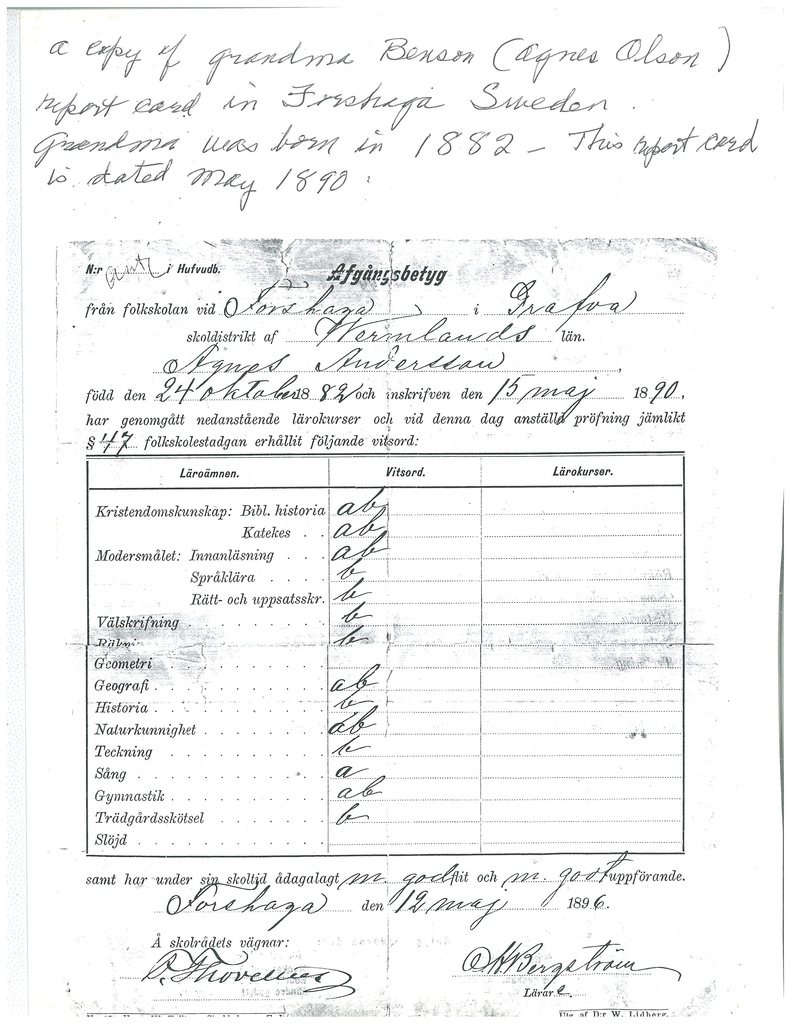 a copy of grandma Benson (Agnes Olson)
report card in Forshaga Sweden.
Grandma was born in 1882 - This report card
is dated May 1890.
N:r i Hufvudb.
Afgångsbetyg
från folkskolan vid Forshaga i Grafva
skoldistrikt af Wermlands län.
Agnes Andersson,
född den 24 oktober 1882 och inskrifven den 15 maj 1890,
har genomgått nedanstående lärokurser och vid denna dag anställd pröfning jämlikt
§ 47 folkskolestadgan erhållit följande vitsord:
Läroämnen. Vitsord. Lärokurser.
Kristendomskunskap: Bibl. historia ab
Katekes . . ab
Modersmålet: Innanläsning . . . ab
Språklära . . . . b
Rätt- och uppsatsskr. b
Välskrifning . . . . . . . . b
Räkning b
Geometri . . . . . . . . .
Geografi . . . . . . . . . ab
Historia . . . . . . . . . b
Naturkunnighet . . . . . . . ab
Teckning . . . . . . . . . b
Sång . . . . . . . . . . a
Gymnastik . . . . . . . . ab
Trädgårdsskötsel . . . . . . b
Slöjd . . . . . . . . . .
samt har under sin skoltid ådagalagt m. god flit och m. godt uppförande.
Forshaga den 12 maj 1896.
Å skolrådets vägnar:
A Bergström
Lärare.
Utg. af D:r W. Lidberg.